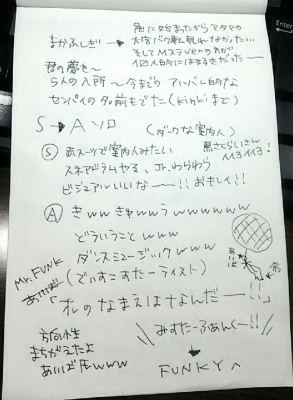 まかふしぎ→
急に始まったからアタマの
大宮バク転見れなかった…
そしてMステver.の方が
個人的には好きだった
君の夢を〜
5人の入所〜今までのアルバム的な
センパイの名前もでた(kinkiまで)
S→Aソロ
(ダークな案内人)
Ⓢ 赤スーツで案内人みたい
黒さらしいさん
イイヨイイヨ!
スネアドラムやる、Jr.わらわら
ビジュアルいいな——!! おもしれぇ!!
Ⓐ きゅwwきゅwwうwwwwwww
どういうことwww
ダンスミュージックwww
(でぃすこすたーライスト)
あいば
Mr.FUNK
あいば
「オレのなまえはナなんだ——!!」
方向性
まちがえたよ
あいば氏www
みすたーふぁんくー!!
FUNKYへ